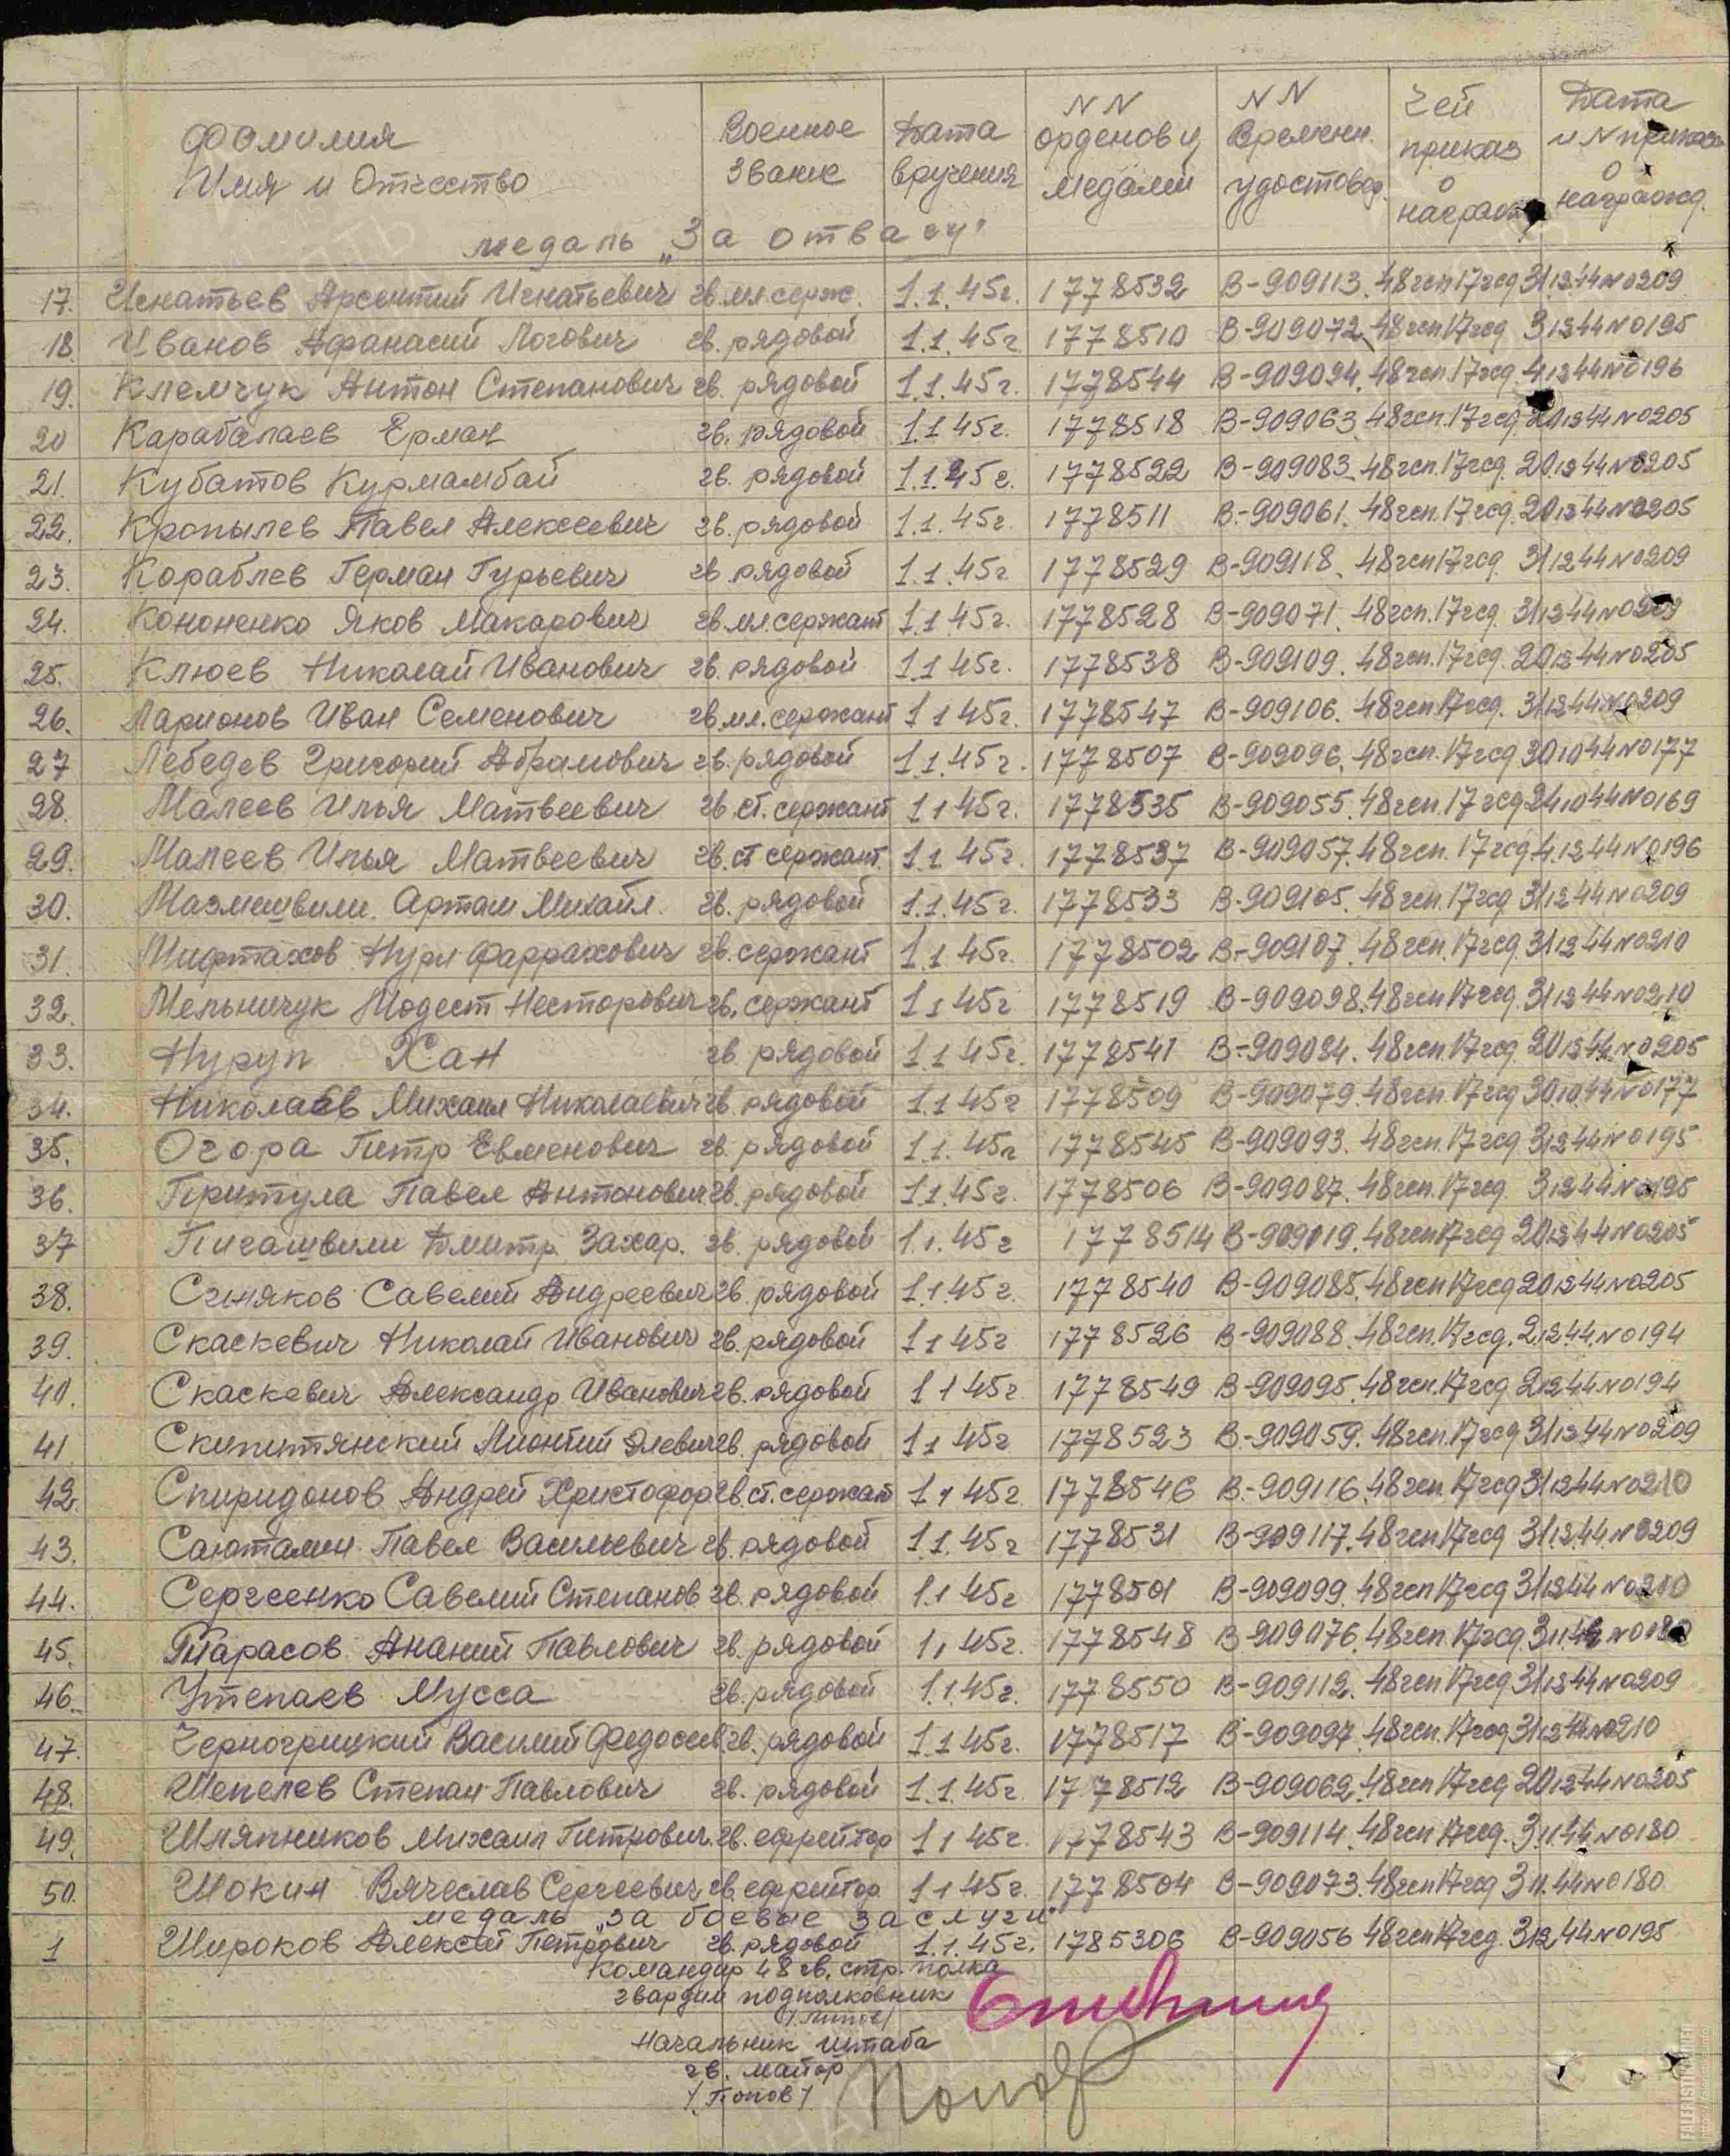 Фамилия Имя и Отчество Военное звание Дата вручения NN орденов и медалей NN Времен. удостовер. Чей приказ о награжд Дата и N приказа о награжд.
медаль „За отвагу"
17. Игнатьев Арсентий Игнатьевич гв. мл. серж. 1.1.45г. 1778532 В-909113. 48гсп 17гсд 31.12.44 N0209
18. Иванов Афанасий Логович гв. рядовой 1.1.45г 1778510 В-909072, 48гсп 17гсд 3.12.44 N0195
19. Климчук Антон Степанович гв. рядовой 1.1.45г. 1778544 В-909094. 48гсп. 17гсд. 4.12.44 N0196
20 Карабалаев Ерман гв. рядовой 1.1.45г. 1778518 В-909063. 48гсп. 17гсд. 20.12.44 N0205
21. Кубатов Курмамбай гв. рядовой 1.1.45г. 1778522 В-909083. 48гсп. 17гсд. 20.12.44 N0205
22. Кропылев Павел Алексеевич гв. рядовой 1.1.45г. 1778511 В-909061. 48гсп. 17гсд. 20.12.44 N0205
23. Кораблев Герман Гурьевич гв рядовой 1.1.45г. 1778529 В-909118. 48гсп 17гсд. 31.12.44 N0209
24. Кононенко Яков Макарович гв. мл. сержант 1.1.45г. 1778528 В-909071. 48гсп. 17гсд. 31.12.44 N0209
25. Клюев Николай Иванович гв. рядовой 1.1.45г. 1778538 В-909109. 48гсп. 17гсд. 20.12.44 N0205
26. Ларионов Иван Семенович гв. мл. сержант 1 1 45г. 1778547 В-909106. 48гсп. 17гсд. 31.12.44. N0209
27 Лебедев Григорий Абрамович гв. рядовой 1.1.45г. 1778507 В-909096. 48гсп. 17гсд 30.10.44 N0177
28. Малеев Илья Матвеевич гв. ст. сержант 1 1 45г. 1778535 В-909055. 48гсп. 17гсд 24.10.44 N0169
29. Малеев Илья Матвеевич гв. ст сержант. 1.1.45г. 1778537 В-909057. 48гсп. 17гсд 4.12.44 N0196
30. Мазмишвили. Арташ Михайл. гв. рядовой 1.1.45г. 1778533 В-909105. 48гсп. 17гсд 31.12.44 N0209
31. Мифтахов Нури Фаррахович гв. сержант 1.1.45г. 1778502 В-909107. 48гсп. 17гсд. 31.12.44 N0210
32. Мельничук Модест Несторович гв. сержант 1 1 45г 1778519 В-909098. 48гсп 17гсд. 31.12.44 N0210
33. Нурун Хан гв рядовой 1 1 45г. 1778541 В-909084. 48гсп. 17гсд. 20.12.44 N0205
34. Николаев Михаил Николаевич гв рядовой 1.1.45г 1778509 В-909079. 48гсп. 17гсд 30.10.44 N0177
35. Огора Петр Евменович гв. рядовой 1.1.45г 1778545 В-909093. 48гсп. 17гсд 3.12.44 N0195
36. Притула Павел Антонович гв. рядовой 1.1.45г. 1778506 В-909087. 48гсп. 17гсд 3.12.44 N0195
37 Пигашвили Дмитр. Захар. гв. рядовой 1.1.45г 1778514 В-909119. 48гсп 17гсд 20.12.44 N0205
38. Сгняков Савелий Андреевич гв. рядовой 1.1.45г. 1778540 В-909085. 48гсп 17гсд 20.12.44 N0205
39. Скаскевич Николай Иванович гв. рядовой 1 1 45г 1778526 В-909088. 48гсп. 17гсд. 2.12.44. N0194
40. Скаскевич Александр Иванович гв. рядовой 1 1 45г 1778549 В-909095. 48гсп. 17гсд 2.12.44 N0194
41. Лионтий гв. рядовой 1 1 45г 1778523 В-909059. 48гсп. 17гсд 31.12.44 N0209
42. Спиридонов Андрей Христофор гв. ст. сержант 1 1 45г 1778546 В-909116. 48гсп. 17гсд 31.12.44 N0210
43. Саютамин Павел Васильевич гв. рядовой 1.1.45г 1778531 В-909117. 48гсп 17гсд 31.12.44. N0209
44. Сергеенко Савелий Степанов гв. рядовой 1.1 45г 1778501 В-909099. 48гсп 17гсд 31.12.44 N0210
45. Тарасов Ананий Павлович гв. рядовой 1.1 45г. 1778548 В-909076. 48гсп. 17гсд. 3.11.44 N0180
46. Утепаев Мусса гв. рядовой 1.1.45г. 1778550 В-909112. 48гсп 17гсд 31.12.44 N0209
47. Черногрицкий Василий Федосеев. гв. рядовой 1.1.45г. 1778517 В-909097. 48гсп. 17гсд 31.12.44 N0210
48. Шепелев Степан Павлович гв. рядовой 1.1.45г. 1778512 В-909062. 48гсп 17гсд 20.12.44 N0205
49. Шляпников Михаил Петрович. гв. ефрейтор 1 1 45г. 1778543 В-909114. 48гсп 17гсд. 3.11.44. N0180
50. Шокин Вячеслав Сергеевич гв. ефрейтор 1 1 45г. 1778504 В-909073. 48гсп 17гсд 3.11.44 N0180
медаль „за боевые заслуги"
1 Широков Алексей Петрович гв. рядовой 1.1.45г. 1785306 В-909056 48гсп 17гсд. 3.12.44 N0195
Командир 48 гв. стр. полка
гвардии подполковник
Начальник штаба
гв. майор
/.Попов/
Попов
FALERISTIKA.INFO